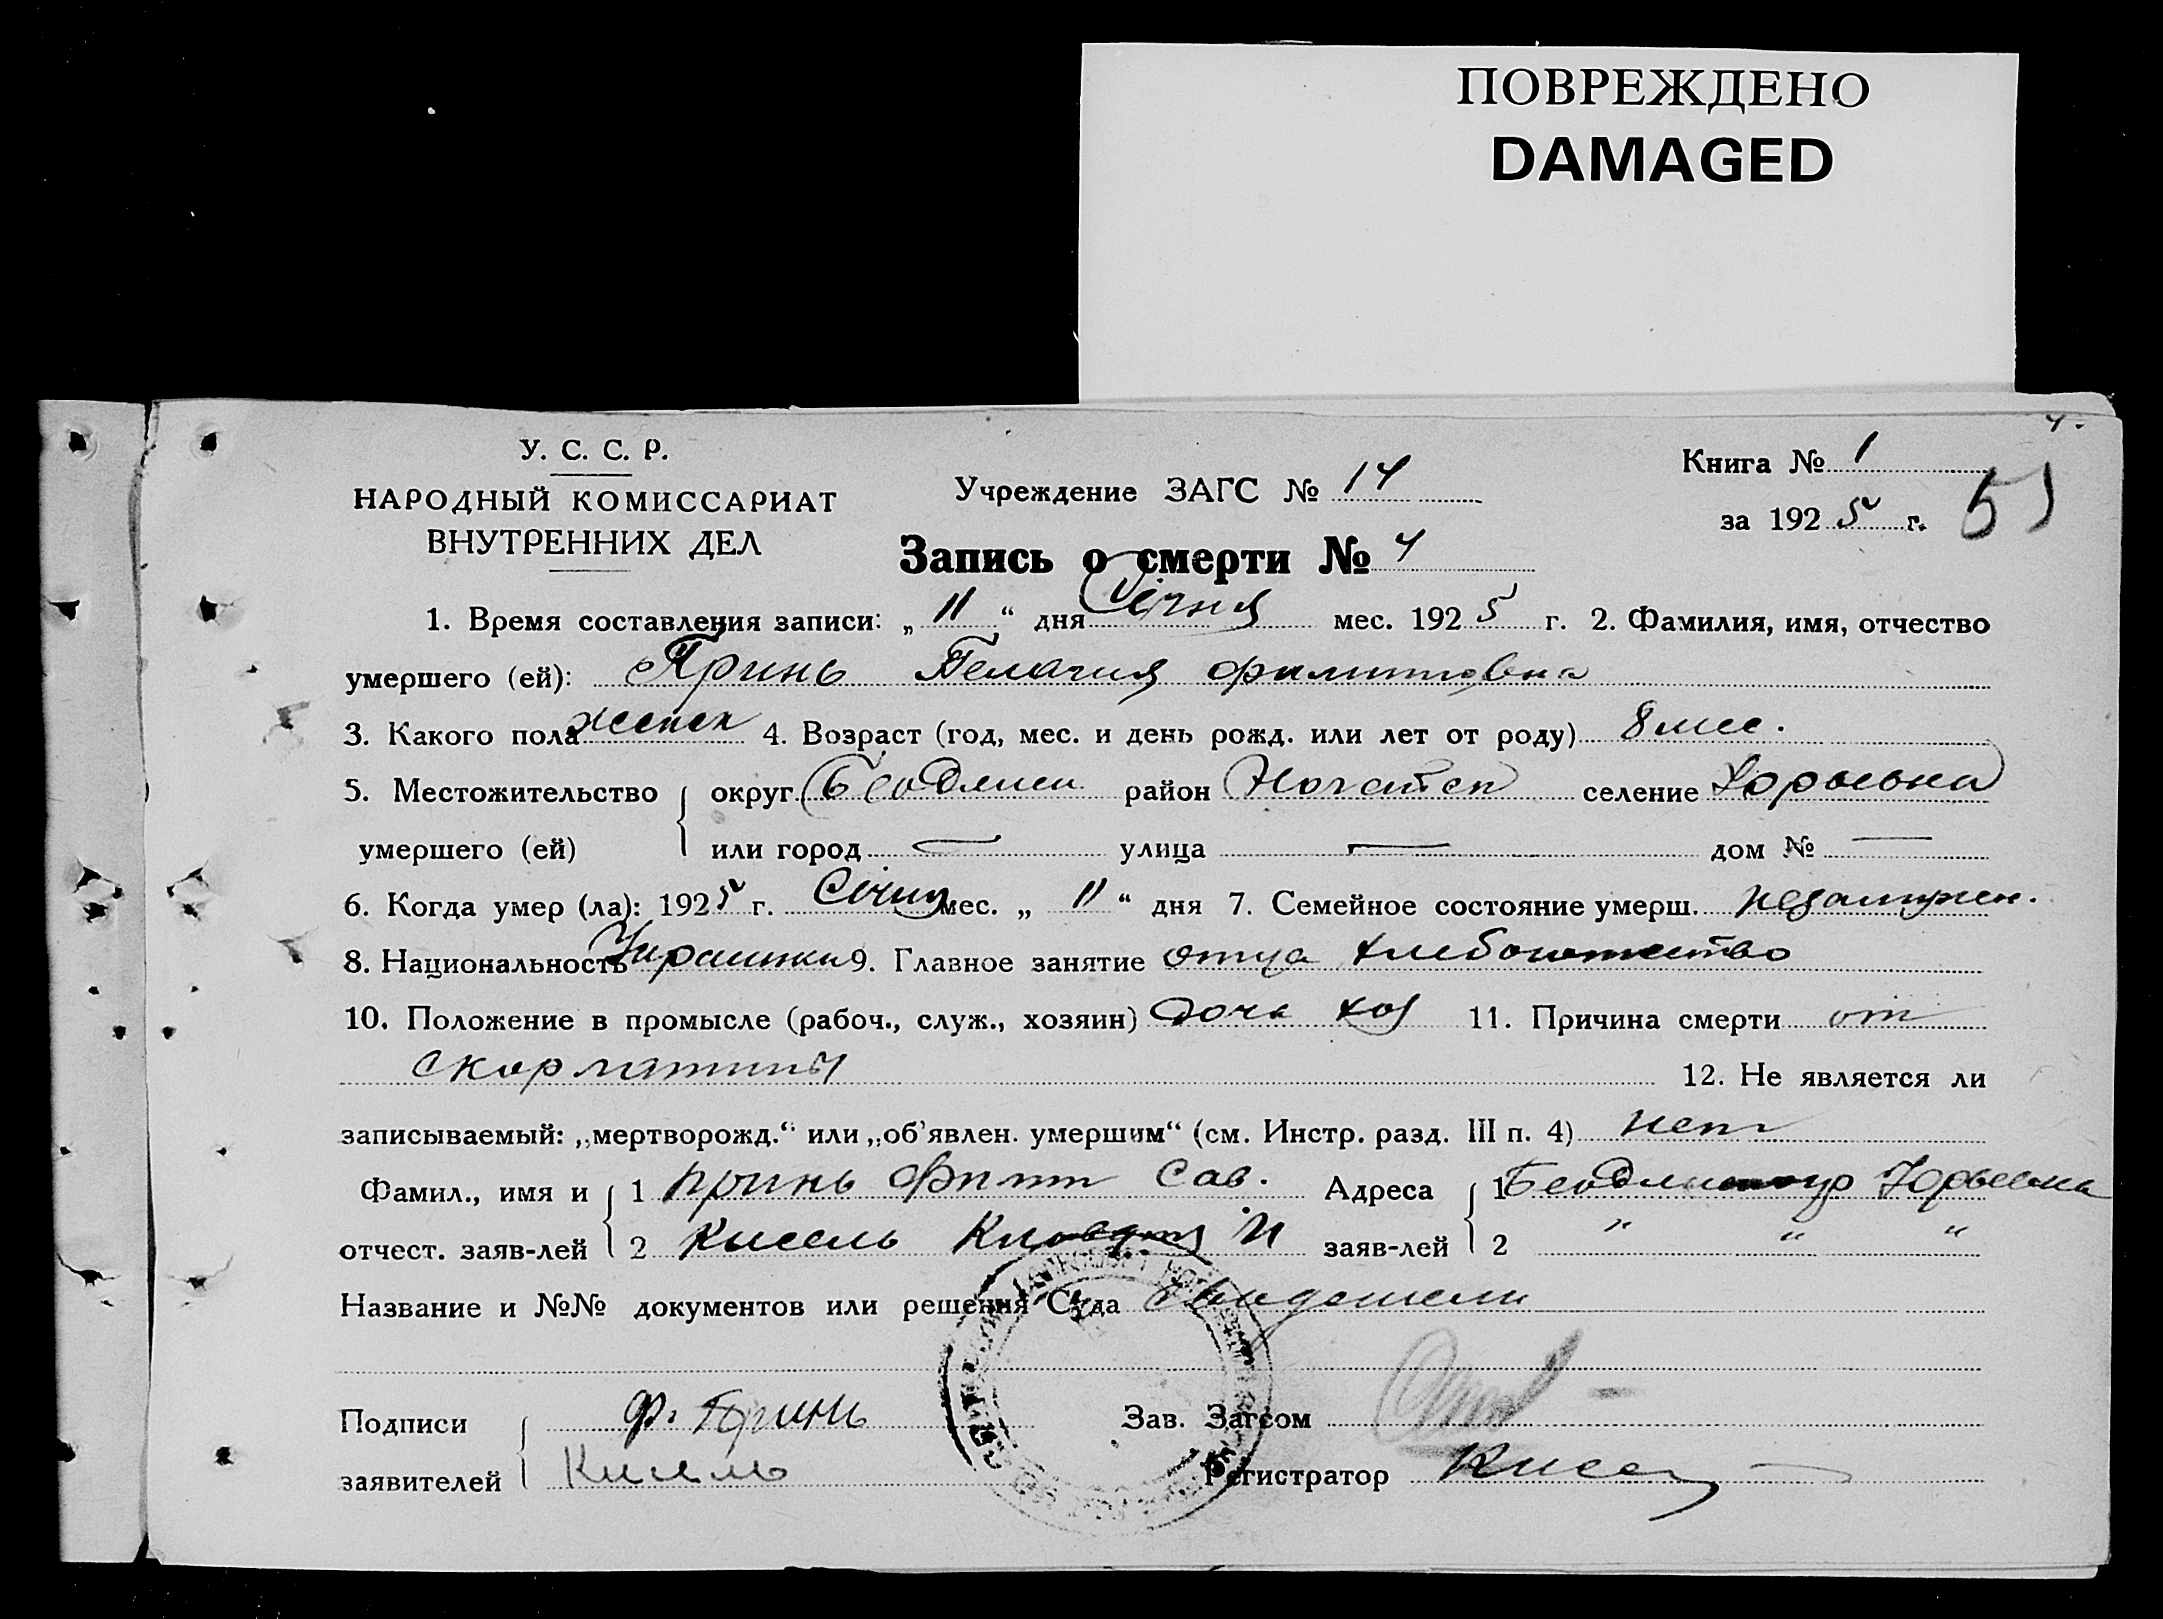 ПОВРЕЖДЕНО
DAMAGED
4.
У. С. С. Р.
НАРОДНЫЙ КОМИССАРИАТ
ВНУТРЕННИХ ДЕЛ
Учреждение ЗАГС № 14
Книга № 1
за 1925 г.
51
Запись о смерти № 4
1. Время составления записи: „ 11 “ дня Січня мес. 1925 г. 2. Фамилия, имя, отчество
умершего (ей): Принь Пелагия
3. Какого пола женск 4. Возраст (год, мес. и день рожд. или лет от роду) 8 мес.
5. Местожительство округ район селение
умершего (ей) или город — улица — дом № —
6. Когда умер (ла): 1925 г. Січня мес. „ 11 “ дня 7. Семейное состояние умерш. незамужен.
8. Национальность 9. Главное занятие отца
10. Положение в промысле (рабоч., служ., хозяин) дочь хоз 11. Причина смерти от
скорлатины
12. Не является ли
записываемый: „мертворожд.“ или „об’явлен. умершим“ (см. Инстр. разд. III п. 4) нет
Фамил., имя и 1 Принь Сав. Адреса 1
отчест. заяв-лей 2 Кисель И заяв-лей 2 " " "
Название и №№ документов или решения Суда
Подписи Ф. Принь Зав. Загсом
заявителей Кисель Регистратор